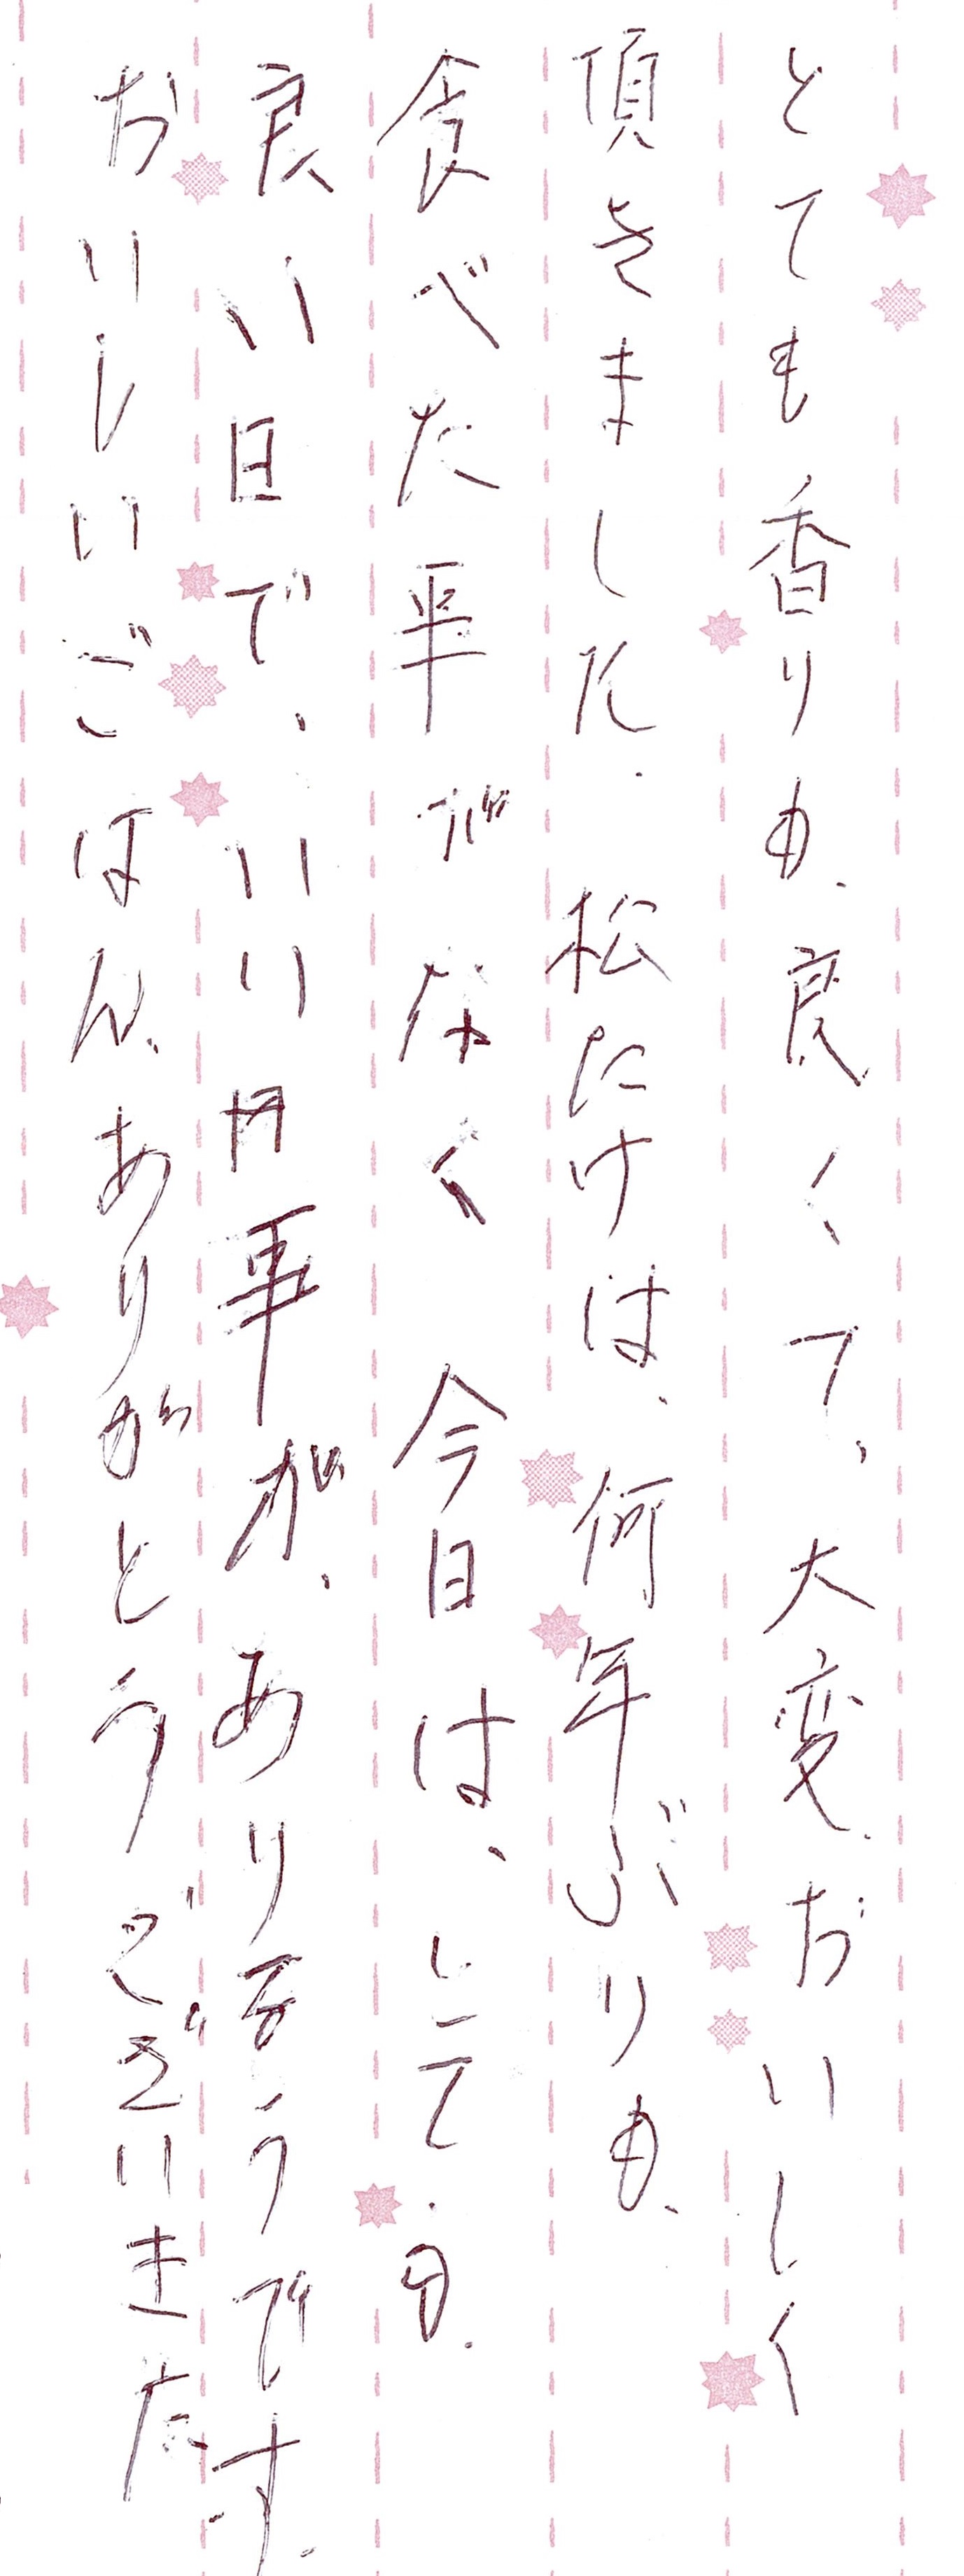 とても香りも、良くて、大変、おいしく
頂きました。松たけは、何年ぶりも、
食べた事がなく 今日は、とても、
良い日で、いい用事が、ありそうです。
おいしいごはん、ありがとうございました